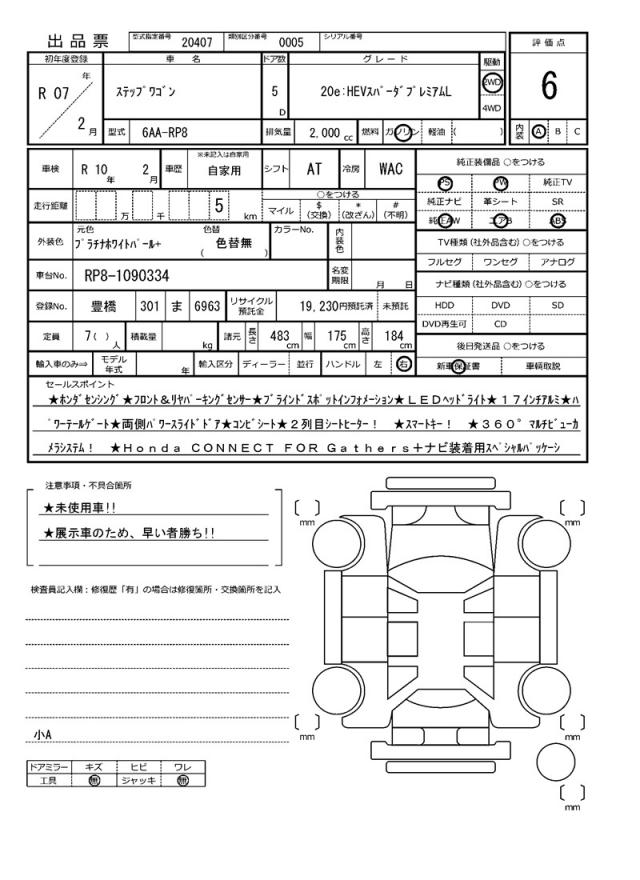 出品票 型式指定番号 20407 類別区分番号 0005 シリアル番号
評価点
6
内装 A B C
初年度登録 車名 ドア数 グレード 駆動
R 07 年 2 月
ステップワゴン 5 D 20e:HEVスパーダプレミアムL 2WD 4WD
型式 6AA-RP8 排気量 2,000 cc 燃料 ガソリン 軽油 ( )
車検 R 10 年 2 月 車歴 ※未記入は自家用 自家用 シフト AT 冷房 WAC
走行距離 万 千 5 km ○をつける
マイル $(交換) *(改ざん) #(不明)
外装色 元色 プラチナホワイトパール+ 色替 ( 色替無 ) カラーNo. 内装色
車台No. RP8-1090334 名変期限 月 日
登録No. 豊橋 301 ま 6963 リサイクル預託金 19,230円預託済 未預託
定員 7( )人 積載量 kg 諸元 長さ 483 cm 幅 175 cm 高さ 184 cm
輸入車のみ⇒ モデル年式 年 輸入区分 ディーラー 並行 ハンドル 左 右
純正装備品 ○をつける
PS PW 純正TV
純正ナビ 革シート SR
純正AW エアB ABS
TV種類(社外品含む)○をつける
フルセグ ワンセグ アナログ
ナビ種類(社外品含む)○をつける
HDD DVD SD
DVD再生可 CD
後日発送品 ○をつける
新車保証書 車輌取説
セールスポイント
★ホンダセンシング★フロント&リヤパーキングセンサー★ブラインドスポットインフォメーション★LEDヘッドライト★17インチアルミ★ハ
゚ワーテールゲート★両側パワースライドドア★コンビシート★2列目シートヒーター! ★スマートキー! ★360°マルチビューカ
メラシステム! ★Honda CONNECT FOR Gathers+ナビ装着用スペシャルパッケージ
注意事項・不具合箇所
★未使用車!!
★展示車のため、早い者勝ち!!
検査員記入欄:修復歴「有」の場合は修復箇所・交換箇所を記入
小A
ドアミラー キズ ヒビ ワレ
工具 無 ジャッキ 無
[ ] mm
[ ] mm
[ ] mm
[ ] mm
[ ] mm